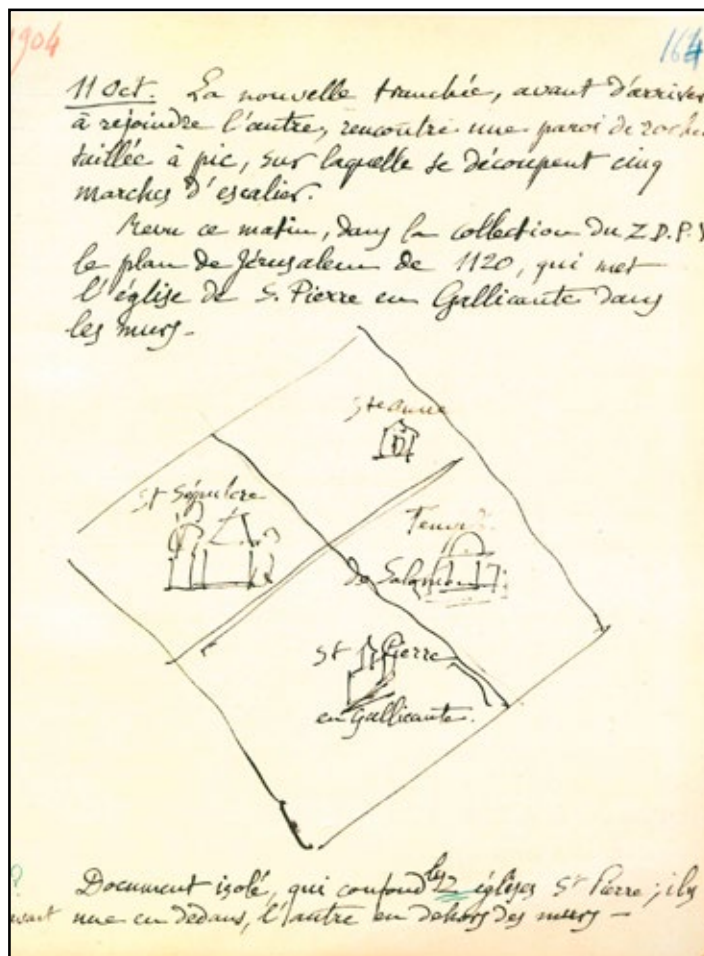 1904
164
11 Oct. La nouvelle tranchée, avant d'arriver
à rejoindre l'autre, rencontre une paroi de roche
taillée à pic, sur laquelle se découpent cinq
marches d'escalier.
Revu ce matin, dans la collection du Z.D.P.V
le plan de Jérusalem de 1120, qui met
l'église de S. Pierre en Gallicante dans
les murs -
Ste Anne
St Sépulcre
de Salomon
St Pierre
en Gallicante.
? Document isolé, qui confond les 2 églises St Pierre; il y
avait une en dedans, l'autre en dehors des murs -